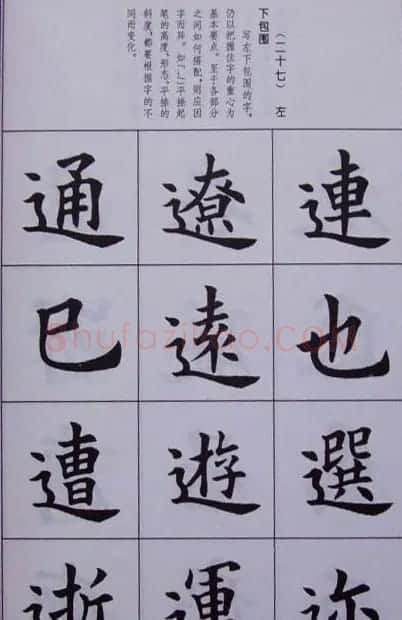 （二十七） 左
下包围
写左下包围的字，
仍以把握住字的重心为
基本要点。至于各部分
之间如何搭配，则应因
字而异。如“辶”平捺起
笔的高度、形态、平捺的
斜度，都要根据字的不
同而变化。
連也選
遼遠遊運
通巳遭逝
Shufaziliao.COM